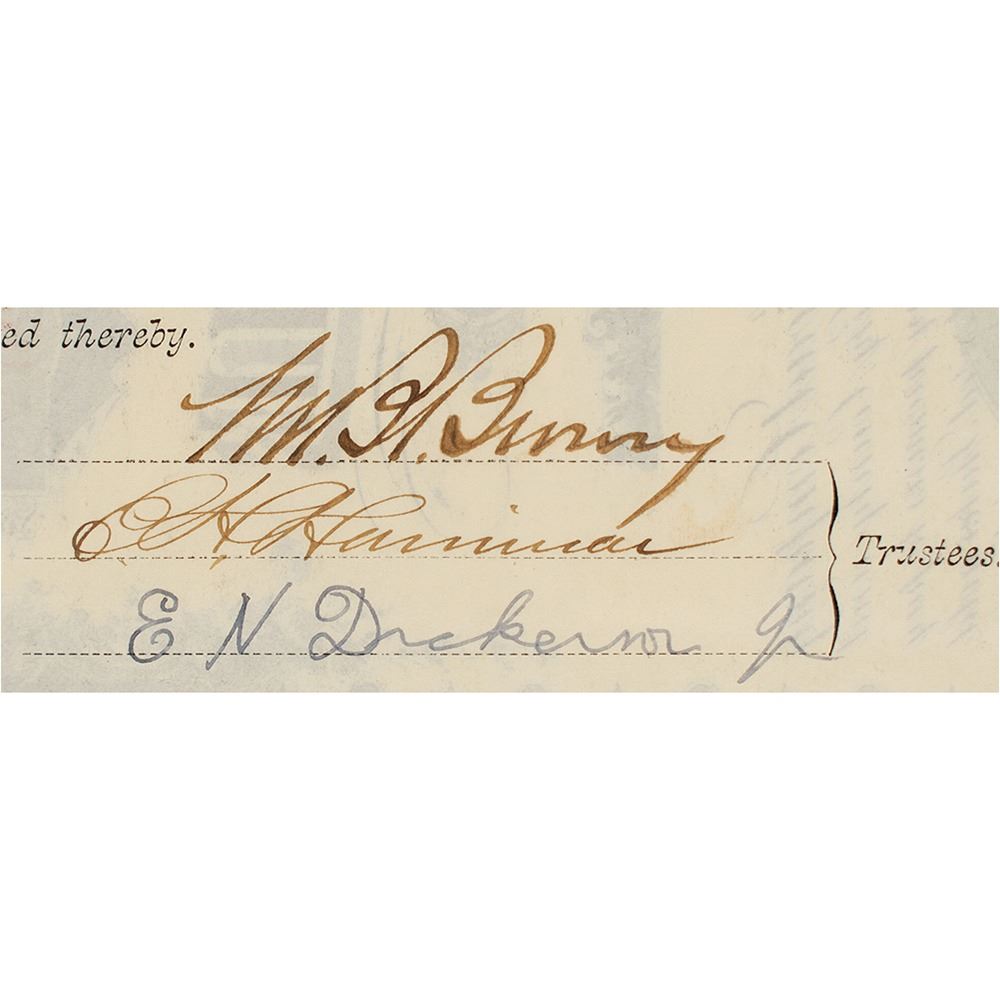 ed thereby.
Wm. B.
E. H. Harriman
Trustees.
E N Dickerson Jr